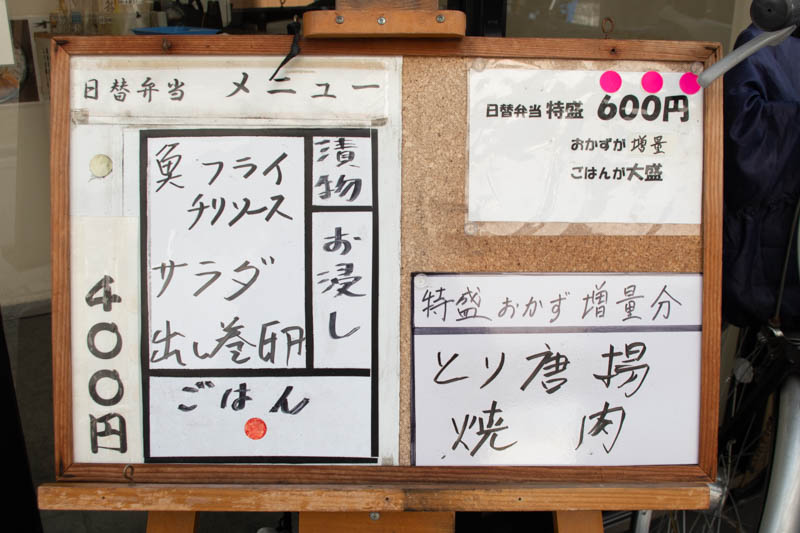 日替弁当 メニュー
魚フライ
チリソース
サラダ
出し巻卵
漬物
お浸し
ごはん
400円
日替弁当 特盛 600円
おかずが増量
ごはんが大盛
特盛おかず増量分
とり唐揚
焼肉